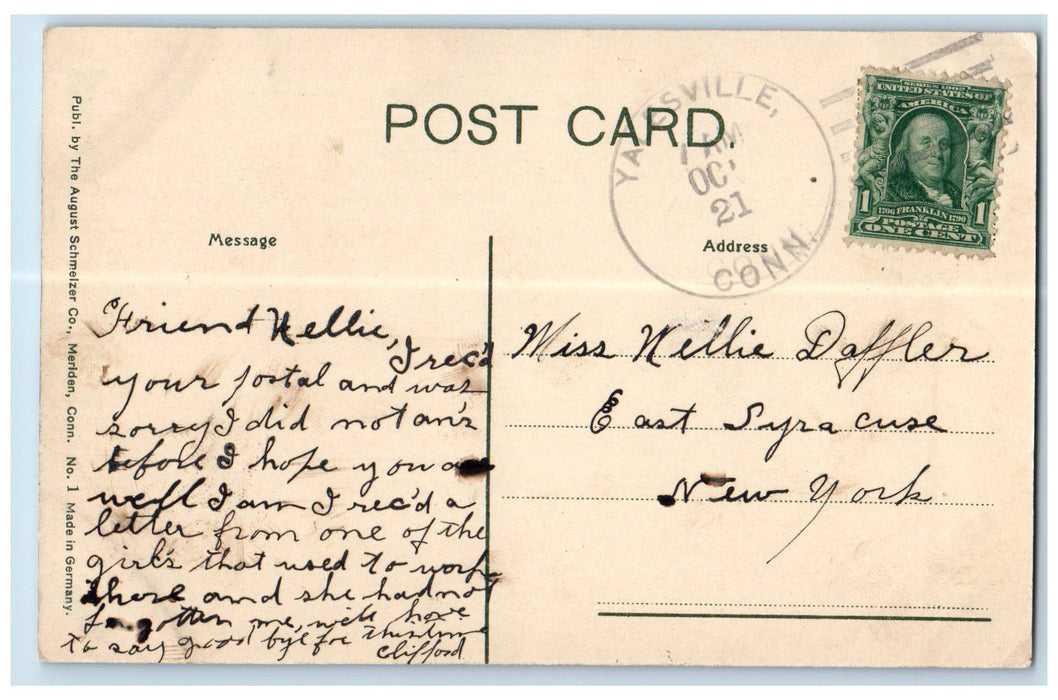 POST CARD.
YALESVILLE,
7 AM
OCT
21
CONN.
SERIES 1902
UNITED STATES OF
AMERICA
1706 FRANKLIN 1790
POSTAGE
1 ONE CENT 1
Publ. by The August Schmelzer Co., Meriden, Conn. No. 1 Made in Germany.
Message
Friend Nellie,
I rec'd
your postal and was
sorry I did not an's
before I hope you are
well I am I rec'd a
letter from one of the
girl's that used to work
there and she had not
forgotten me, well have
to say good bye for this time
Clifford
Address
Miss Nellie Daffler
East Syracuse
New York